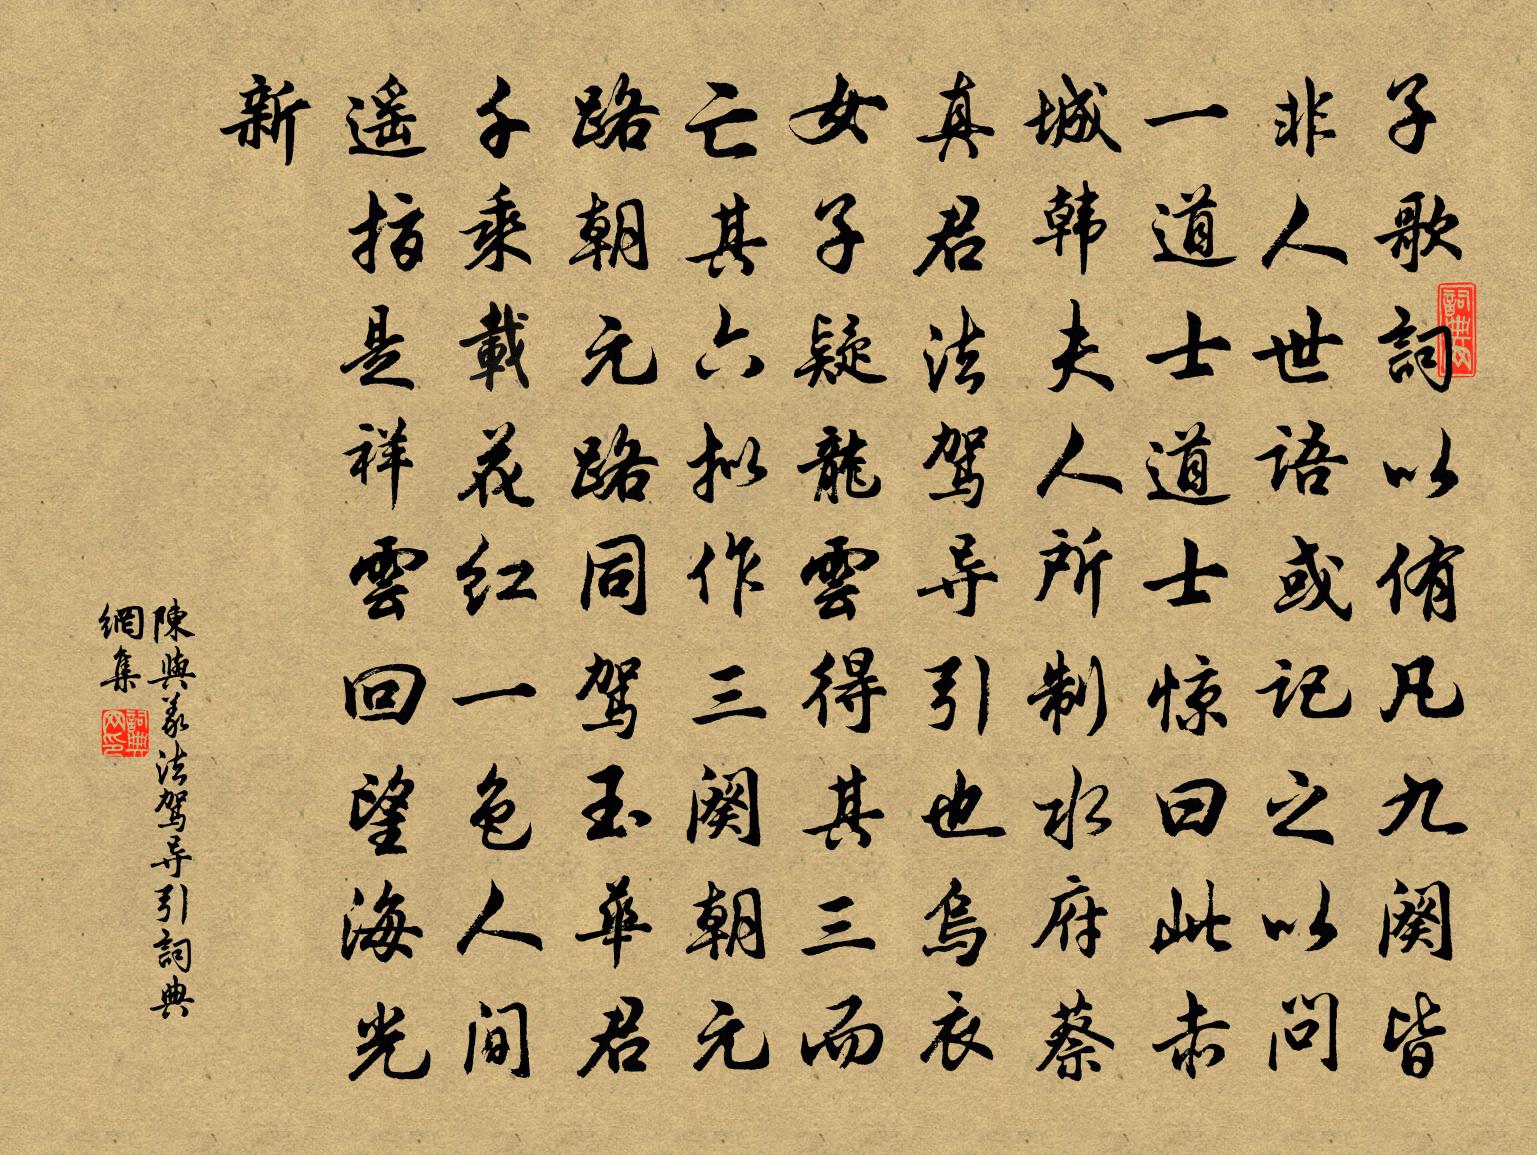 子歌詞以侑凡九阕皆
非人世語或記之以問
一道士道士惊曰此赤
城韩夫人所制水府蔡
真君法驾导引也烏衣
女子疑龍雲得其三而
亡其六拟作三阕朝元
路朝元路同驾玉華君
千乘載花红一色人间
遥指是祥雲回望海光
新
陳與義法驾导引詞典
網集
詞典網
詞典網印